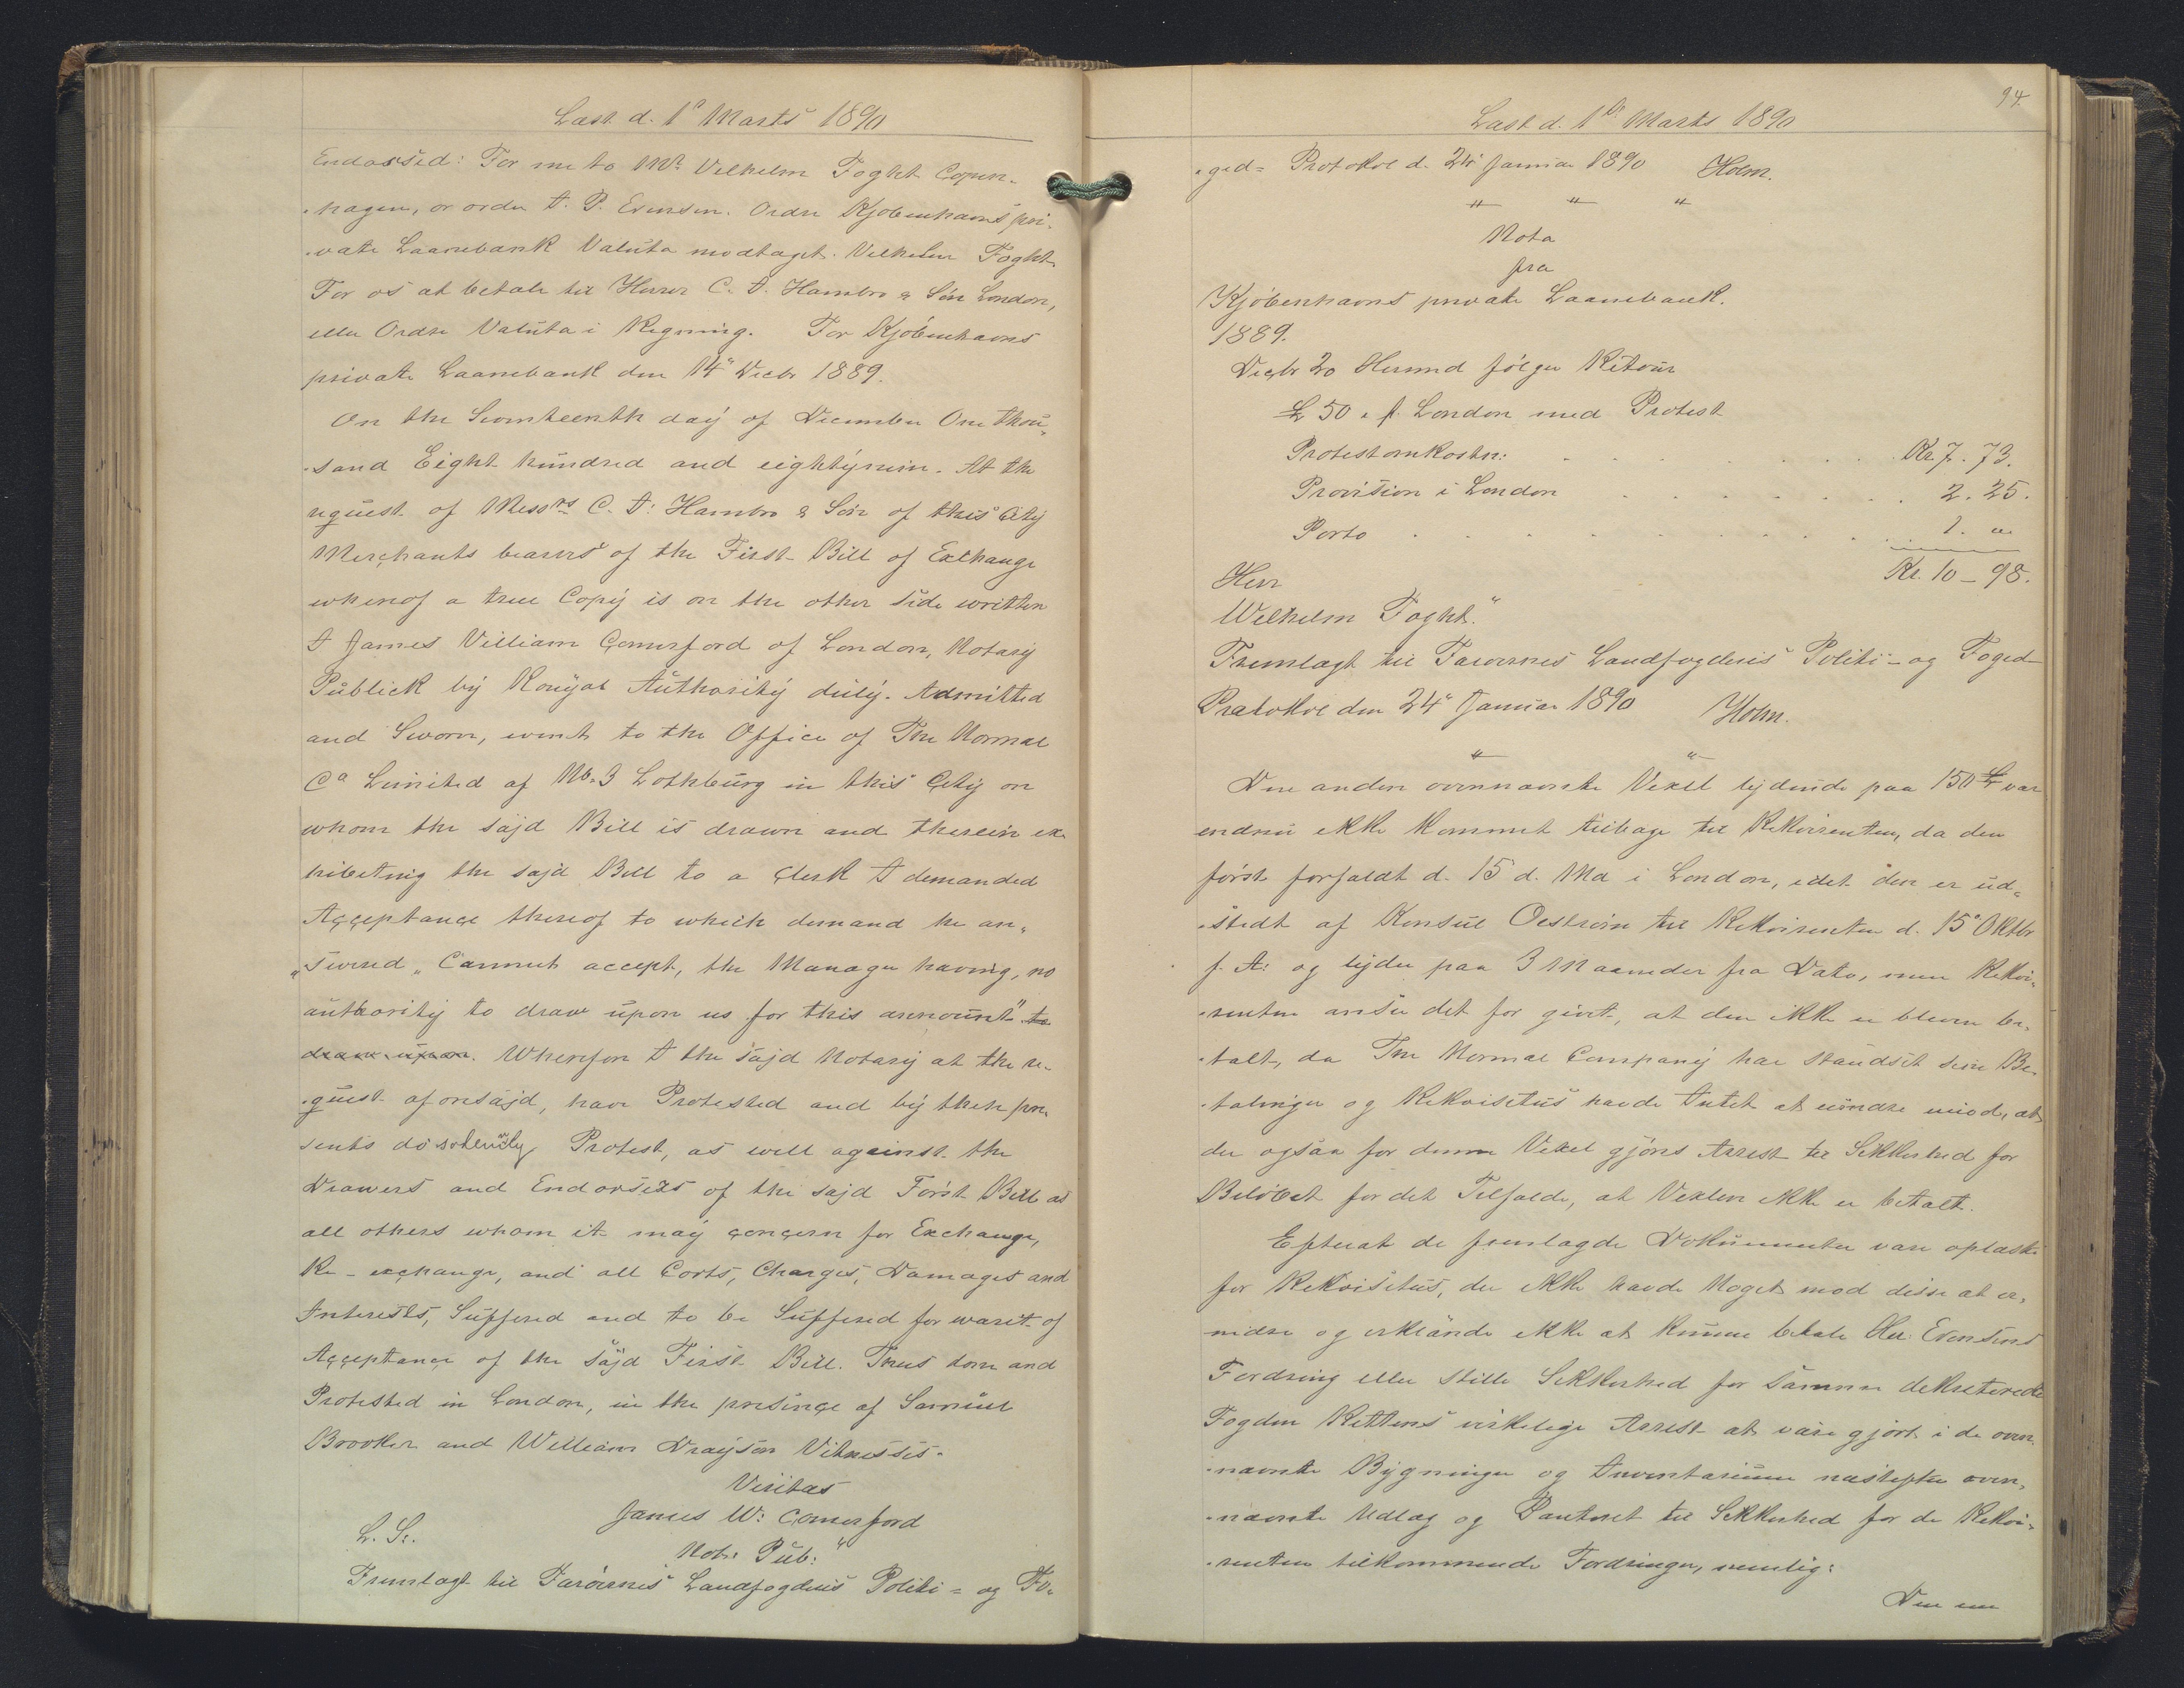 Læst d. 1ste Marts 1890
Endorsed: For me to Mr. Vilhelm Foght Copen-
-hagen, or order D. P. Evensen. Ordre Kjöbenhavns pri-
-vate Laanebank Valuta modtaget. Vilhelm Foght.
For os at betale til Herrer C. J. Hambro & Sön London,
eller Ordre Valuta i Regning. For Kjöbenhavns
private Laanebank den 14" Decbr 1889.
On the Seventeenth day of December One thou-
-sand Eight hundred and eightynine. At the
request of Messrs C. J. Hambro & Son of this City
Merchants bearers of the First Bill of Exchange
whereof a true Copy is on the other side written
I James William Comerford of London, Notary
Publick by Rouyal Authority duly. Admitted
and Sworn, went to the Office of The Normal
Co Limited af No. 3 Lothburg in this City on
whom the sajd Bill is drawn and therein ex-
hibiting the sajd Bill to a Clerk I demanded
Acceptance thereof to which demand he an-
"swered „Cannot accept, the Manager having, no
authority to draw upon us for this amount" to
draw upon. Wherefore I the sajd Notary at the re-
-quest aforesajd, have Protested and by these pre-
sents do solemnly Protest, as well against the
Drawers and Endorsers of the sajd Först Bill as
all others whom it may concern for Exchange,
Re-exchange, and all Corts, Charges, Damages and
Interests, Suffered and to be Suffered for want of
Acceptance of the sajd First Bill. Thus done and
Protested in London, in the presence af Samuel
Brooker and William Drayson Vitnesses.
Veritas
James W: Comerford
L. S.
Not: Pub:"
Fremlagt til Færöernes Landfogderis Politi= og Fo-
94.
Læst d. 1ste Marts 1890
-ged= Protokol d. 24' Januar 1890 Holm.
" " "
Nota
fra
Kjöbenhavns private Laanebank.
1889.
Decbr 20 Herved fölger Retour
£ 50 „ f. London med Protest
Protestomkostn: Kr. 7. 73.
Provision i London 2. 25.
Porto 1. „
Kr. 10 - 98.
Herr
Wilhelm Foght."
Fremlagt til Færöernes Landfogderis Politi- og Foged
Protokol den 24' Januar 1890 Holm.
" "
Den anden ovennævnte Vexel lydende paa 150 £ var
endnu ikke kommet tilbage til Rekvirenten, da den
först forfaldt d. 15 d. Md i London, idet den er ud-
-stedt af Konsul Oeström til Rekvirenten d. 15' Oktbr
f. A: og lyder paa 3 Maaneder fra Dato, men Rekvi-
-renten anser det for givet, at den ikke er bleven be-
-talt, da The Normal Company har standset sine Be-
-talinger og Rekvisitus havde Intet at invende imod, at
der ogsaa for denne Vexel gjöres Arrest til Sikkerhed for
Belöbet for det Tilfælde, at Vexlen ikke er betalt.
Efterat de fremlagde Dokumenter vare oplæste
for Rekvisitus, der ikke havde Noget mod disse at er-
indre og erklærede ikke at kunne betale Hr: Evensens
Fordring eller stille Sikkerhed for samme dekreterede
Fogden Rettens virkelige Arrest at være gjort i de oven-
-nævnte Bygninger og Inventarium næstefter oven-
-nævnte Udlæg og Panteret til Sikkerhed for de Rekvi-
-renten tilkommende Fordringer, nemlig:
Den em